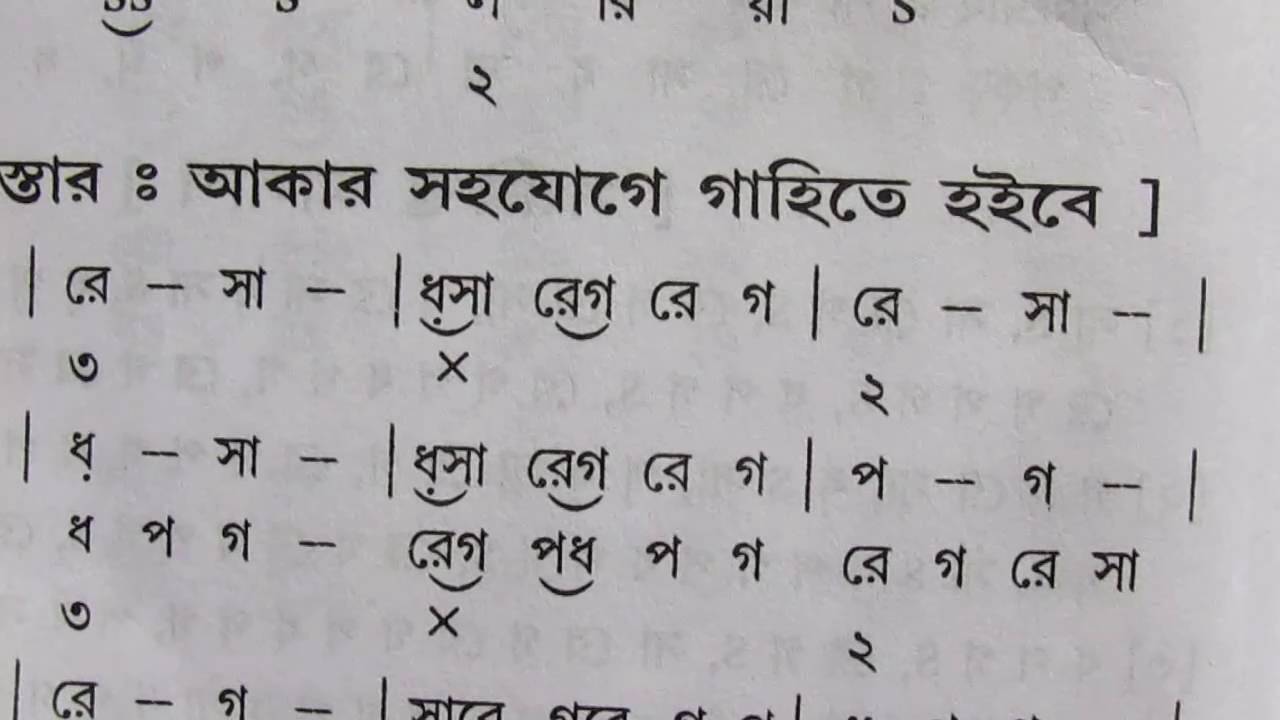 ২
স্তার ঃ আকার সহযোগে গাহিতে হইবে ]
| রে – সা – | ধ়সা রেগ রে গ | রে – সা – |
৩ × ২
| ধ় – সা – | ধ়সা রেগ রে গ | প – গ – |
ধ প গ – রেগ পধ প গ রে গ রে সা
৩ × ২
| রে – গ – |